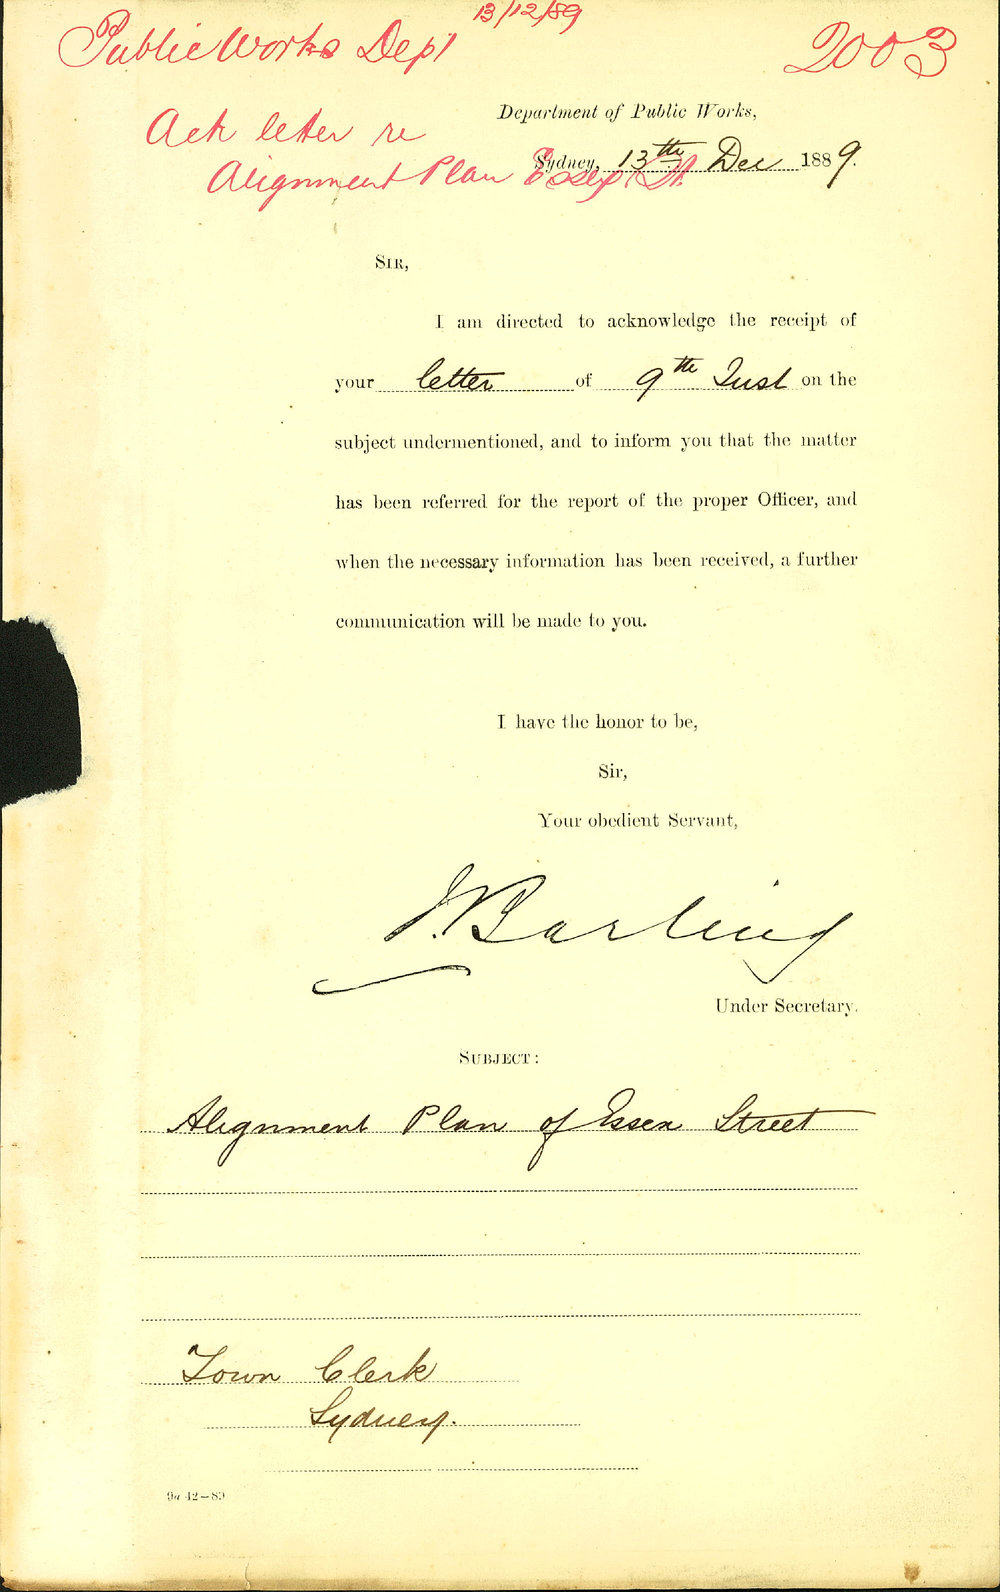 13/12/89
Public Works Dept
2003
Ack letter re
Alignment Plan Essex St.
Department of Public Works,
Sydney, 13th Dec 1889.
SIR,
I am directed to acknowledge the receipt of
your letter of 9th Inst on the
subject undermentioned, and to inform you that the matter
has been referred for the report of the proper Officer, and
when the necessary information has been received, a further
communication will be made to you.
I have the honor to be,
Sir,
Your obedient Servant,
J. Barling
Under Secretary.
SUBJECT:
Alignment Plan of Essex Street
Town Clerk
Sydney.
9a 42—89